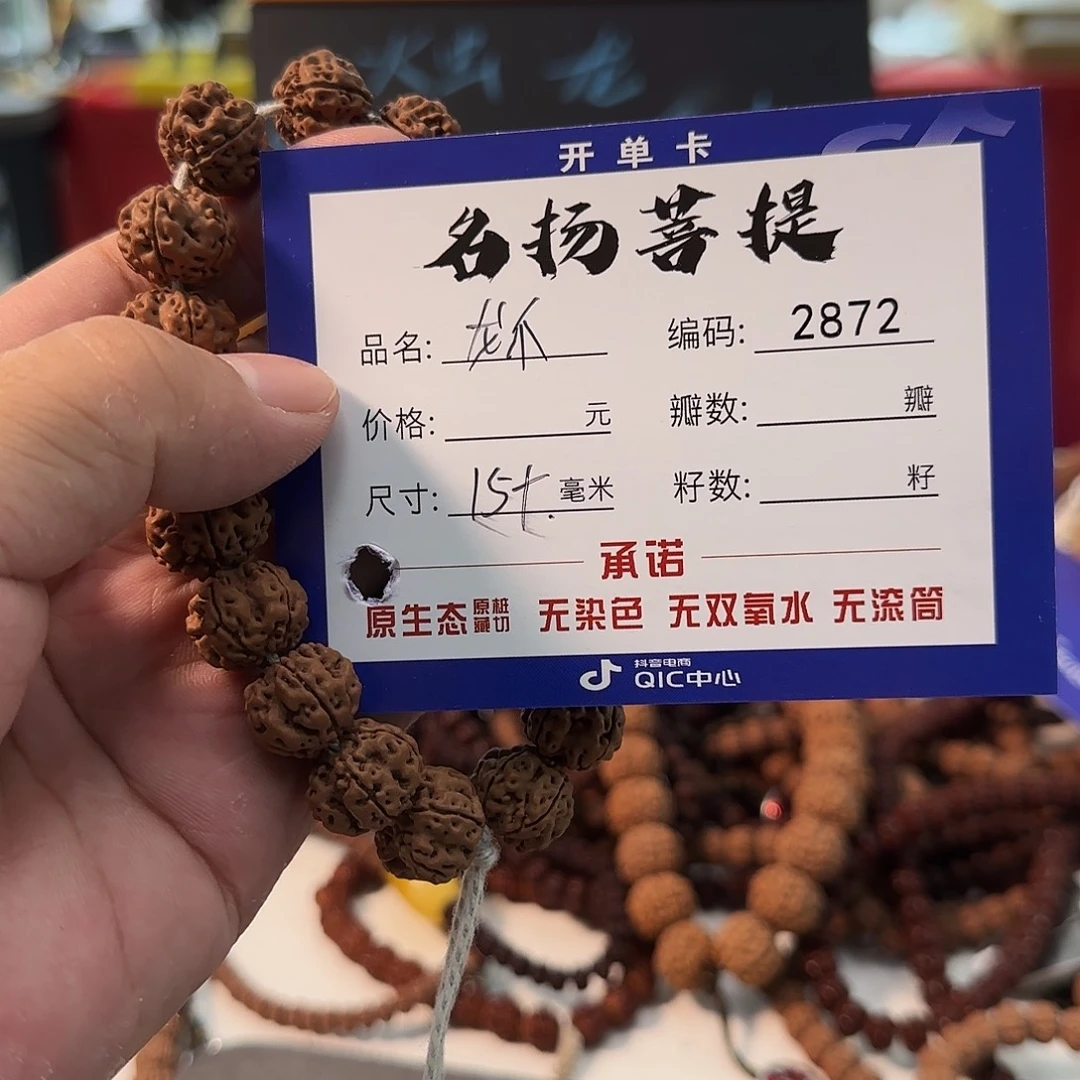 开单卡
名扬菩提
品名: 龙爪 编码: 2872
价格: 元 瓣数: 瓣
尺寸: 15+. 毫米 籽数: 籽
承诺
原生态 原桩藏切 无染色 无双氧水 无滚筒
抖音电商
QIC中心